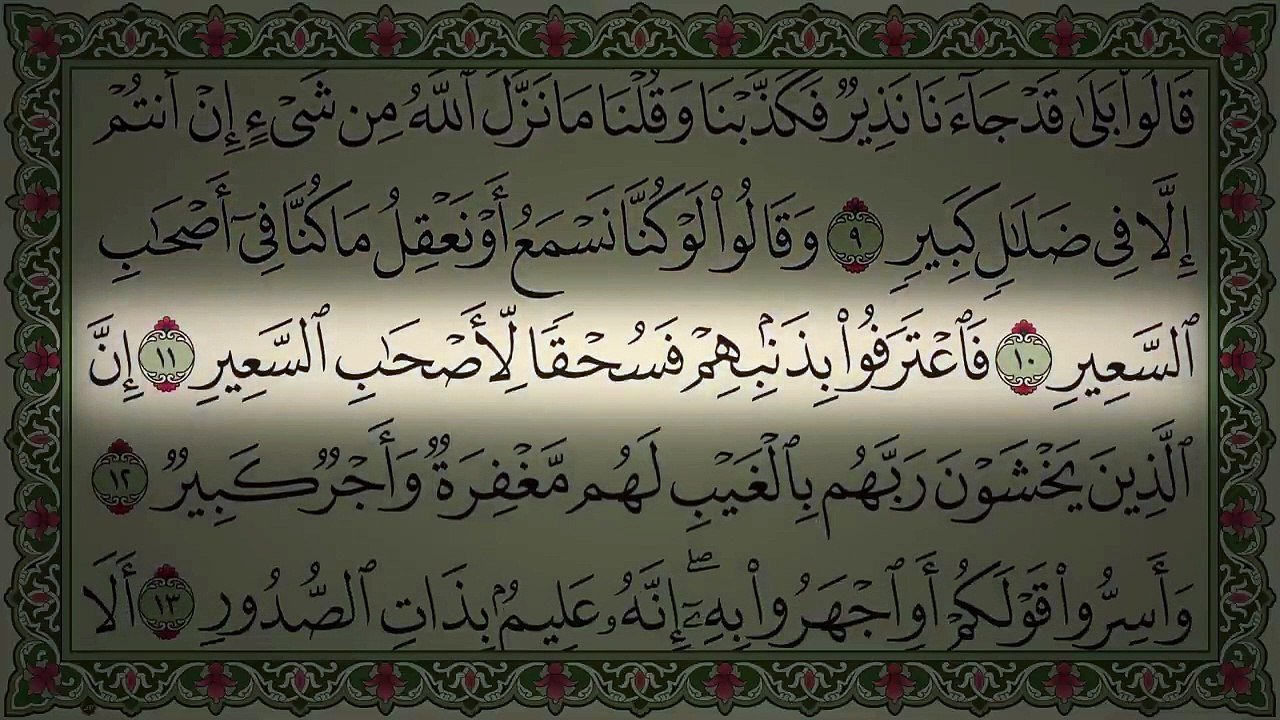 قَالُوا۟ بَلَىٰ قَدْ جَآءَنَا نَذِيرٌ فَكَذَّبْنَا وَقُلْنَا مَا نَزَّلَ ٱللَّهُ مِن شَىْءٍ إِنْ أَنتُمْ
إِلَّا فِى ضَلَـٰلٍ كَبِيرٍ ٩ وَقَالُوا۟ لَوْ كُنَّا نَسْمَعُ أَوْ نَعْقِلُ مَا كُنَّا فِىٓ أَصْحَـٰبِ
ٱلسَّعِيرِ ١٠ فَٱعْتَرَفُوا۟ بِذَنۢبِهِمْ فَسُحْقًا لِّأَصْحَـٰبِ ٱلسَّعِيرِ ١١ إِنَّ
ٱلَّذِينَ يَخْشَوْنَ رَبَّهُم بِٱلْغَيْبِ لَهُم مَّغْفِرَةٌ وَأَجْرٌ كَبِيرٌ ١٢
وَأَسِرُّوا۟ قَوْلَكُمْ أَوِ ٱجْهَرُوا۟ بِهِۦٓ ۖ إِنَّهُۥ عَلِيمٌۢ بِذَاتِ ٱلصُّدُورِ ١٣ أَلَا